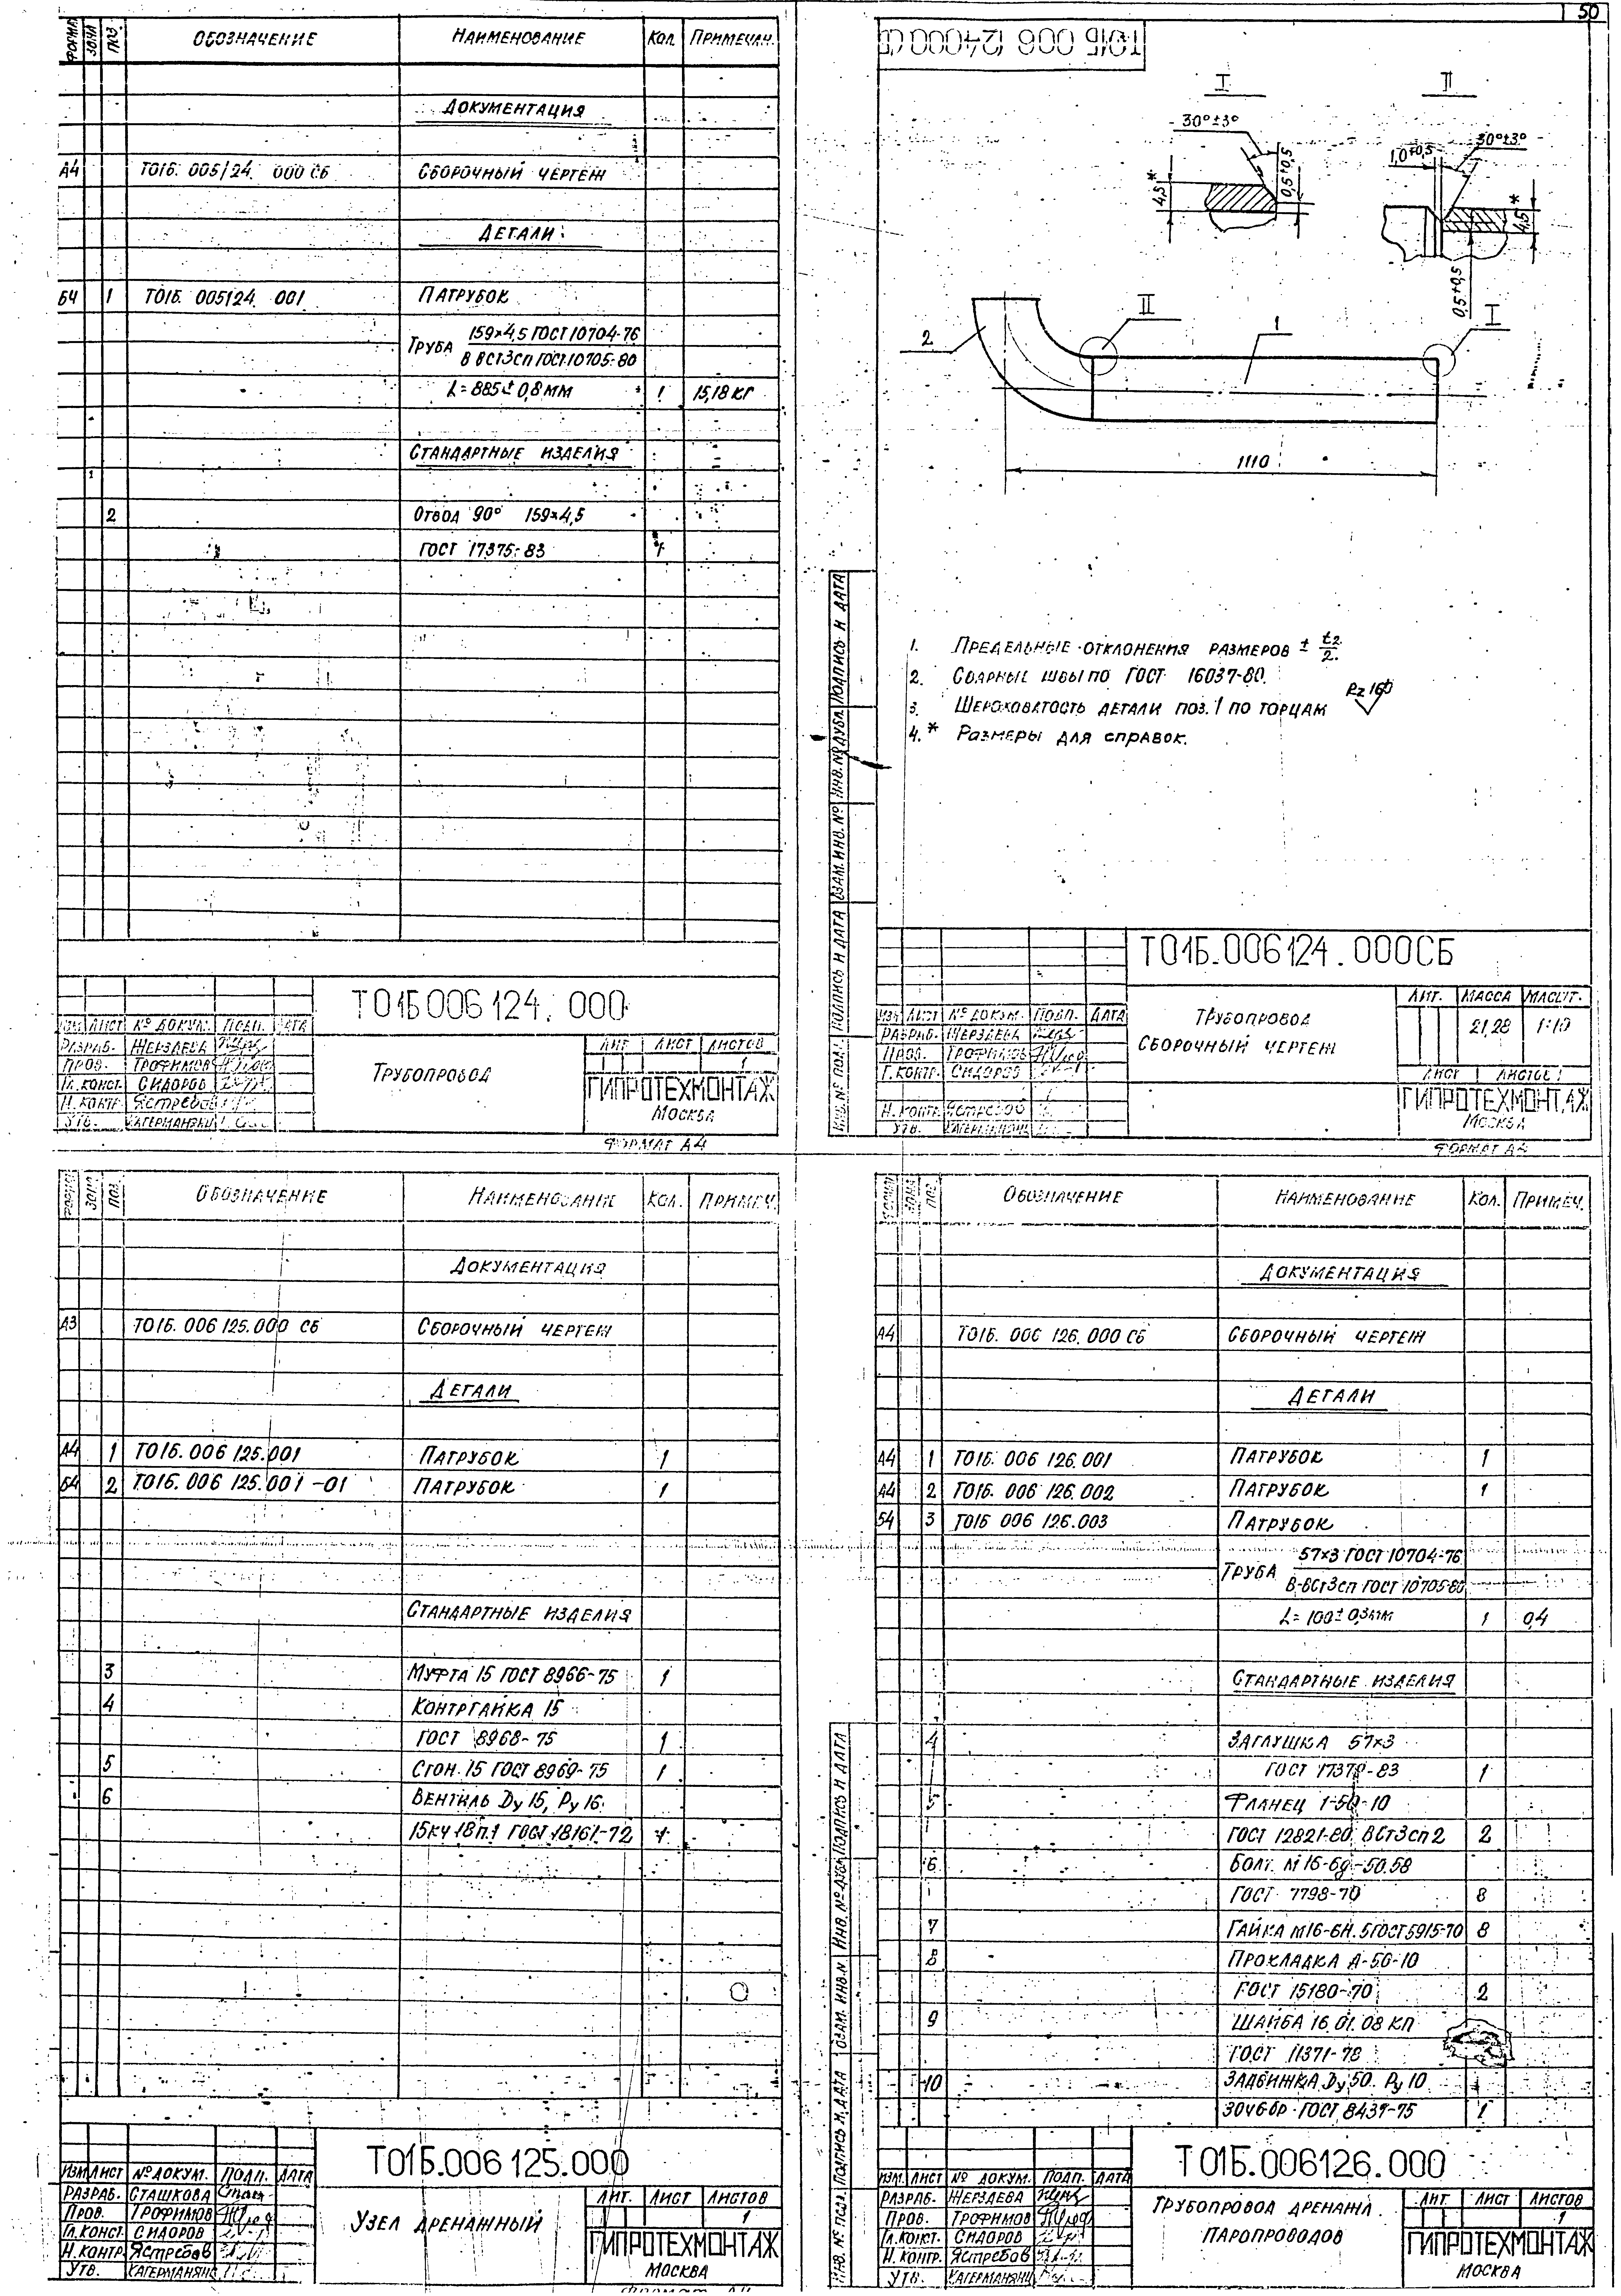 50
ФОРМАТ ЗОНА ПОЗ. ОБОЗНАЧЕНИЕ НАИМЕНОВАНИЕ КОЛ. ПРИМЕЧАН.
ДОКУМЕНТАЦИЯ
А4 Т01Б. 005124. 000 СБ СБОРОЧНЫЙ ЧЕРТЕЖ
ДЕТАЛИ
БЧ 1 Т01Б. 005124. 001 ПАТРУБОК
ТРУБА 159×4,5 ГОСТ 10704-76
В ВСт3сп ГОСТ 10705-80
L=885±0,8 мм 1 15,18 кг
СТАНДАРТНЫЕ ИЗДЕЛИЯ
2 ОТВОД 90° 159×4,5
ГОСТ 17375-83 1
Т01Б 006 124. 000
ИЗМ ЛИСТ № ДОКУМ. ПОДП. ДАТА
РАЗРАБ. ЖЕРЗДЕВА
ПРОВ. ТРОФИМОВ
ГЛ.КОНСТ. СИДОРОВ
Н. КОНТР. ЯСТРЕБОВ
УТВ. КАГЕРМАНЯНЦ
ТРУБОПРОВОД
ЛИТ ЛИСТ ЛИСТОВ
1
ГИПРОТЕХМОНТАЖ
МОСКВА
ФОРМАТ А4
Т01Б 006 124000 СБ
I
30°±3°
4,5*
0,5+0,5
II
1,0+0,5
30°±3°
4,5*
0,5+0,5
2
II
1
I
1110
1. ПРЕДЕЛЬНЫЕ ОТКЛОНЕНИЯ РАЗМЕРОВ ± t2/2.
2. СВАРНЫЕ ШВЫ ПО ГОСТ 16037-80.
3. ШЕРОХОВАТОСТЬ ДЕТАЛИ ПОЗ. 1 ПО ТОРЦАМ Rz 160
4. * РАЗМЕРЫ ДЛЯ СПРАВОК.
ИНВ. № ПОДЛ. ПОДПИСЬ И ДАТА ВЗАМ. ИНВ. № ИНВ. № ДУБЛ. ПОДПИСЬ И ДАТА
Т01Б.006124.000СБ
ИЗМ ЛИСТ № ДОКУМ. ПОДП. ДАТА
РАЗРАБ. ЖЕРЗДЕВА
ПРОВ. ТРОФИМОВ
Г.КОНТР. СИДОРОВ
Н. КОНТР. ЯСТРЕБОВ
УТВ. КАГЕРМАНЯНЦ
ТРУБОПРОВОД
СБОРОЧНЫЙ ЧЕРТЕЖ
ЛИТ. МАССА МАСШТ.
21,28 1:10
ЛИСТ ЛИСТОВ 1
ГИПРОТЕХМОНТАЖ
МОСКВА
ФОРМАТ А4
ФОРМАТ ЗОНА ПОЗ. ОБОЗНАЧЕНИЕ НАИМЕНОВАНИЕ КОЛ. ПРИМЕЧ.
ДОКУМЕНТАЦИЯ
А3 Т01Б. 006 125.000 СБ СБОРОЧНЫЙ ЧЕРТЕЖ
ДЕТАЛИ
А4 1 Т01Б. 006 125.001 ПАТРУБОК 1
БЧ 2 Т01Б. 006 125.001 -01 ПАТРУБОК 1
СТАНДАРТНЫЕ ИЗДЕЛИЯ
3 МУФТА 15 ГОСТ 8966-75 1
4 КОНТРГАЙКА 15
ГОСТ 8968-75 1
5 СГОН 15 ГОСТ 8969-75 1
6 ВЕНТИЛЬ Dу 15, Pу 16
15кч 18п.1 ГОСТ 18161-72 1
Т01Б.006 125.000
ИЗМ ЛИСТ № ДОКУМ. ПОДП. ДАТА
РАЗРАБ. СТАШКОВА
ПРОВ. ТРОФИМОВ
ГЛ.КОНСТ. СИДОРОВ
Н. КОНТР. ЯСТРЕБОВ
УТВ. КАГЕРМАНЯНЦ
УЗЕЛ ДРЕНАЖНЫЙ
ЛИТ. ЛИСТ ЛИСТОВ
1
ГИПРОТЕХМОНТАЖ
МОСКВА
ФОРМАТ А4
ФОРМАТ ЗОНА ПОЗ. ОБОЗНАЧЕНИЕ НАИМЕНОВАНИЕ КОЛ. ПРИМЕЧ.
ДОКУМЕНТАЦИЯ
А4 Т01Б. 006 126. 000 СБ СБОРОЧНЫЙ ЧЕРТЕЖ
ДЕТАЛИ
А4 1 Т01Б. 006 126.001 ПАТРУБОК 1
А4 2 Т01Б. 006 126.002 ПАТРУБОК 1
БЧ 3 Т01Б 006 126.003 ПАТРУБОК
ТРУБА 57×3 ГОСТ 10704-76
В-ВСт3сп ГОСТ 10705-80
L=100±0,3мм 1 0,4
СТАНДАРТНЫЕ ИЗДЕЛИЯ
4 ЗАГЛУШКА 57×3
ГОСТ 17379-83 1
5 ФЛАНЕЦ 1-50-10
ГОСТ 12821-80 ВСт3сп2 2
6 БОЛТ М16-6g-50.58
ГОСТ 7798-70 8
7 ГАЙКА М16-6Н.5 ГОСТ 5915-70 8
8 ПРОКЛАДКА А-50-10
ГОСТ 15180-70 2
9 ШАЙБА 16.01.08 КП
ГОСТ 11371-78
10 ЗАДВИЖКА Dу 50 Pу 10
30ч6бр ГОСТ 8437-75 1
ИНВ. № ПОДЛ. ПОДПИСЬ И ДАТА ВЗАМ. ИНВ. № ИНВ. № ДУБЛ. ПОДПИСЬ И ДАТА
Т01Б.006126.000
ИЗМ. ЛИСТ № ДОКУМ. ПОДП. ДАТА
РАЗРАБ. ЖЕРЗДЕВА
ПРОВ. ТРОФИМОВ
ГЛ.КОНСТ. СИДОРОВ
Н. КОНТР. ЯСТРЕБОВ
УТВ. КАГЕРМАНЯНЦ
ТРУБОПРОВОД ДРЕНАЖА
ПАРОПРОВОДОВ
ЛИТ ЛИСТ ЛИСТОВ
1
ГИПРОТЕХМОНТАЖ
МОСКВА